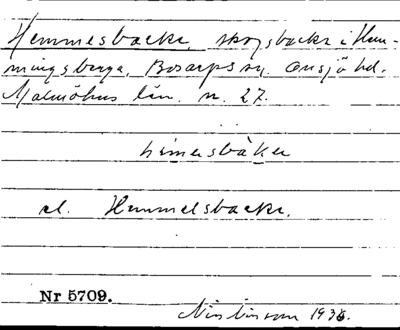 Hemmesbacke, skogsbacke i Hem-
mingsberga, Bosarps sn. Onsjö hd.
Malmöhus län. n. 27.
himersbàker
el. Hemmelsbacke.
Nr 5709.
193